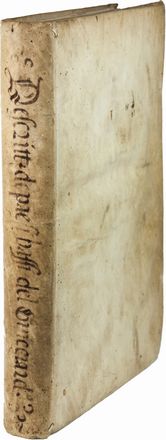 Descritt. de paesi bassi del Guicciard.